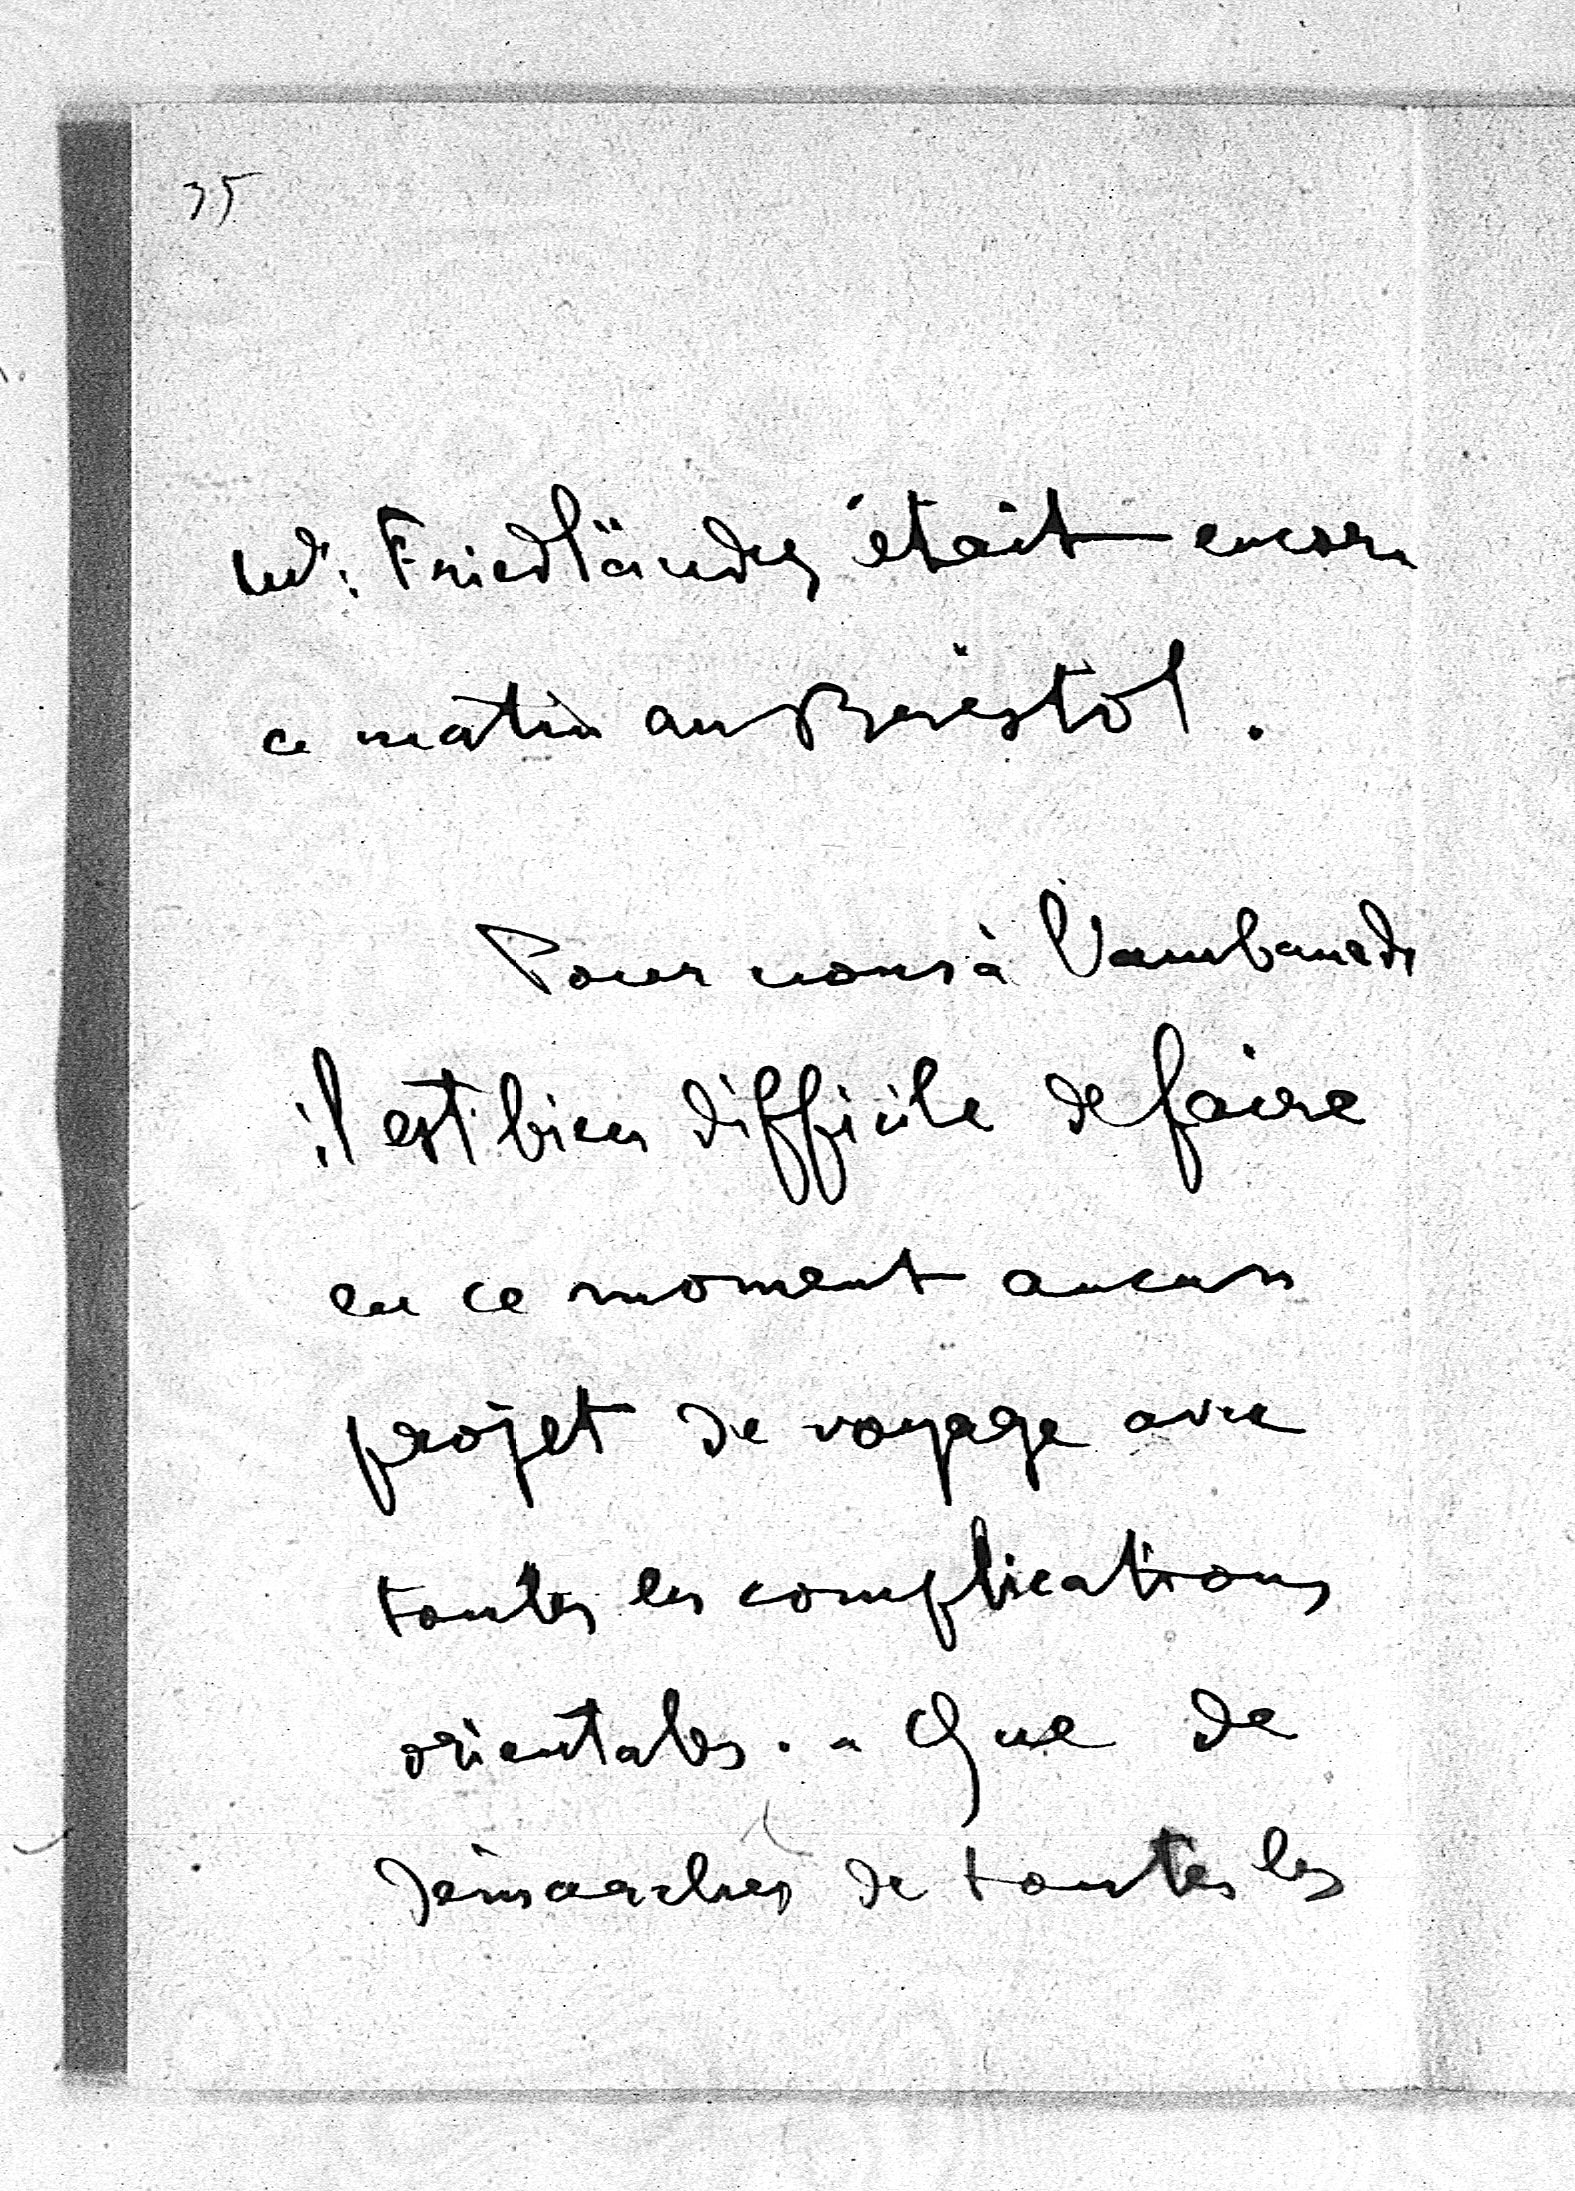 35
M. Friedländer était encore
ce matin au Bristol.
Pour nous à l'ambassade
il est bien difficile de faire
en ce moment aucun
projet de voyage avec
toutes les complications
orientales. - Que de
démarches de toutes les